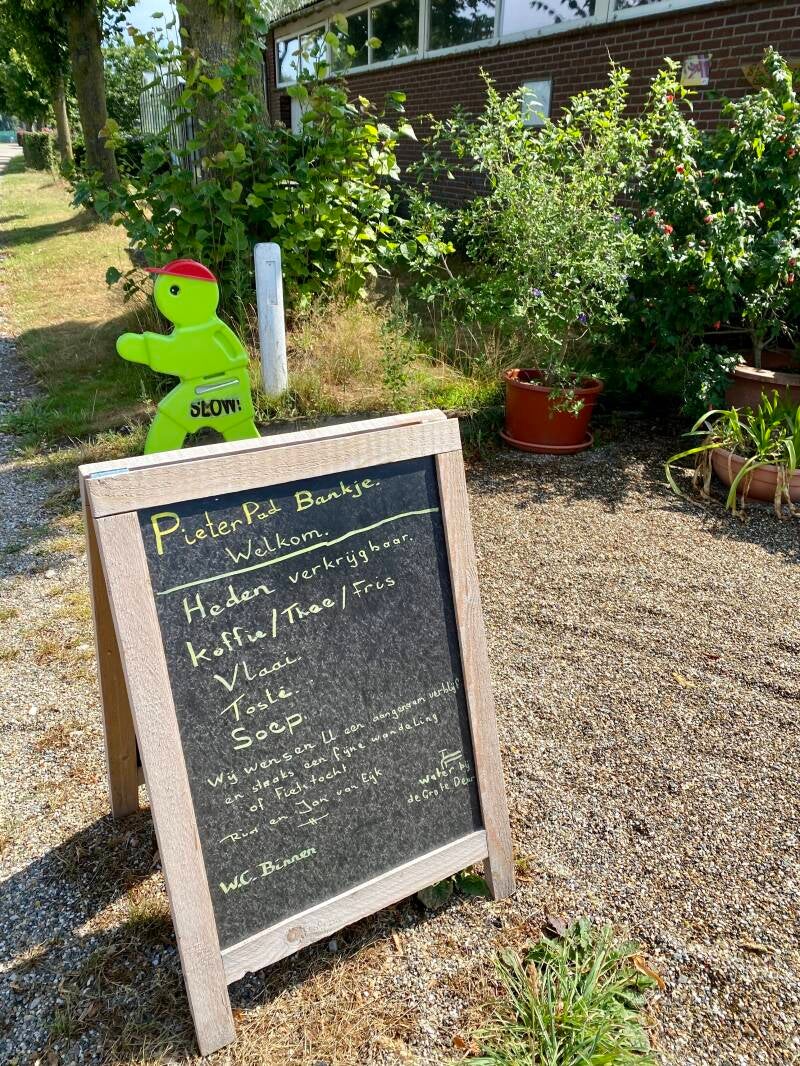 SLOW!
PieterPad Bankje.
Welkom.
Heden verkrijgbaar.
koffie/Thee/Fris
Vlaai.
Tostie.
Soep.
Wij wensen U een aangenaam verblijf
en straks een fijne wandeling
of Fietstocht.
en Jan van Eijk
water bij
de Grote Deur
W.C. Binnen